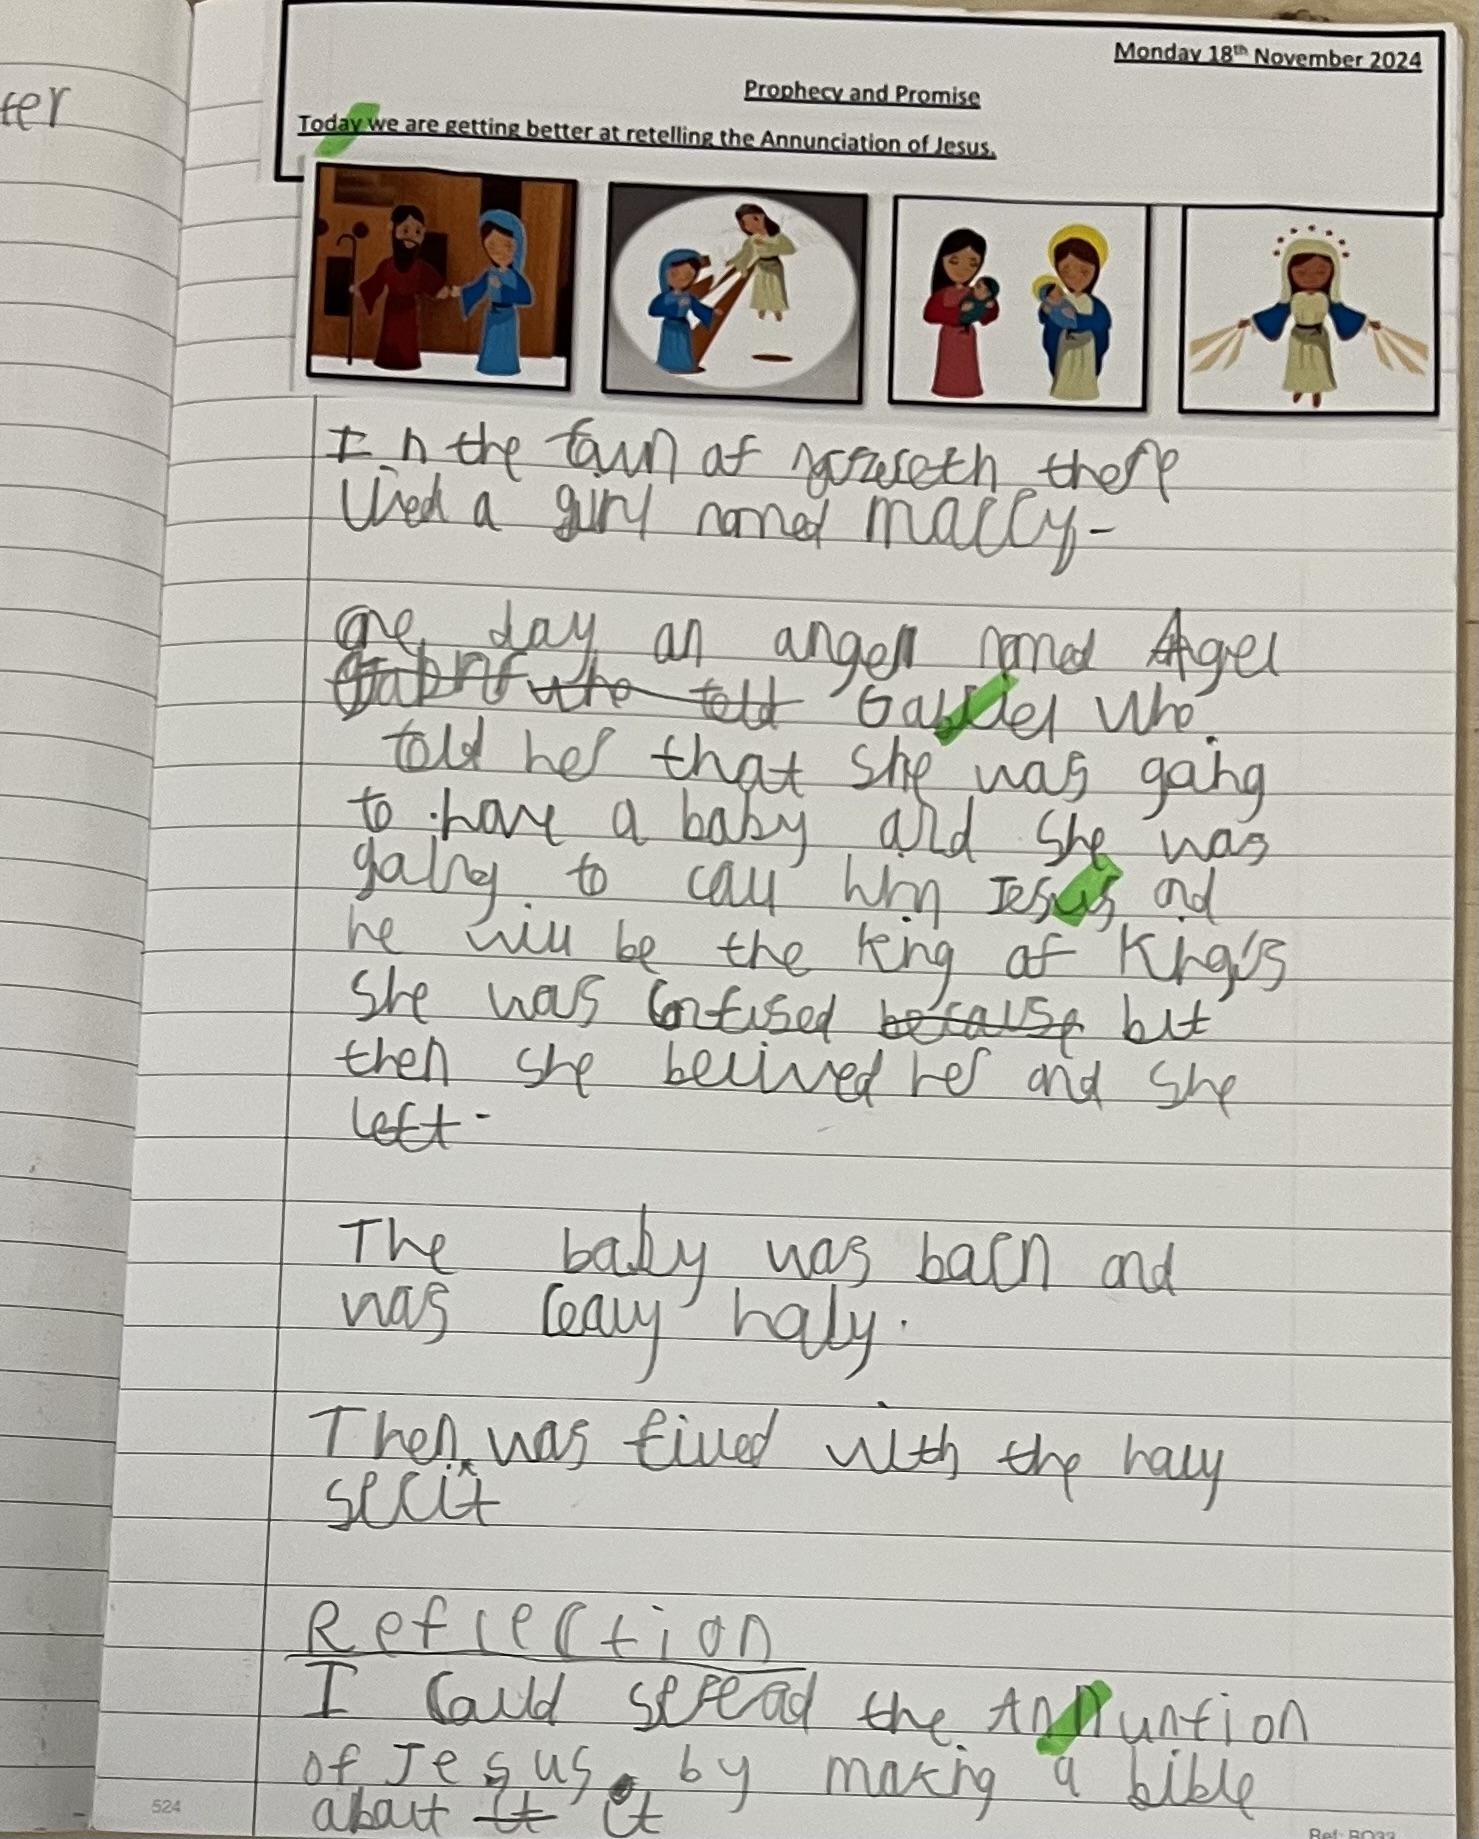 ter
Monday 18th November 2024
Prophecy and Promise
Today we are getting better at retelling the Annunciation of Jesus.
In the town of nazereth there
lived a girl named marry.
One day an angel named Angel
Gabriel who told Gabriel who
told her that she was going
to have a baby and she was
going to call him Jesus and
he will be the king of King's
she was confused because but
then she belived her and she
left.
The baby was born and
was realy holy.
Then was filled with the holy
sprit
Reflection
I could spread the Annuntion
of Jesus by making a bible
about it it
524